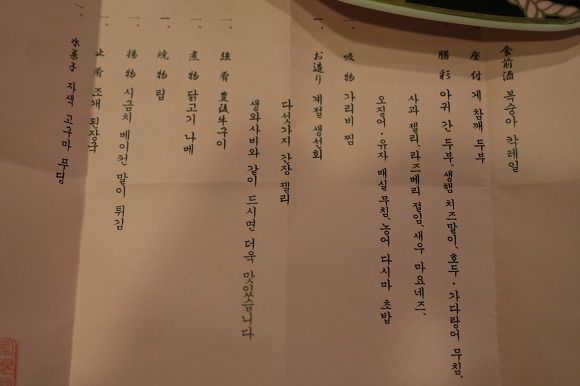 食前酒 복숭아 칵테일
一、座付 게 참깨 두부
一、膳彩 아귀 간 두부、생햄 치즈말이、호두・가다랑어 무침、
사과 젤리、라즈베리 절임、새우 마요네즈、
오징어・유자 매실 무침、농어 다시마 초밥
一、吸物 가리비 찜
一、お造り 계절 생선회
다섯가지 간장 젤리
생와사비와 같이 드시면 더욱 맛있습니다
一、強肴 豊後牛구이
一、煮物 닭고기 나베
一、焼物 림
一、揚物 시금치 베이컨 말이 튀김
一、止肴 조개 된장국
一、水菓子 자색 고구마 푸딩